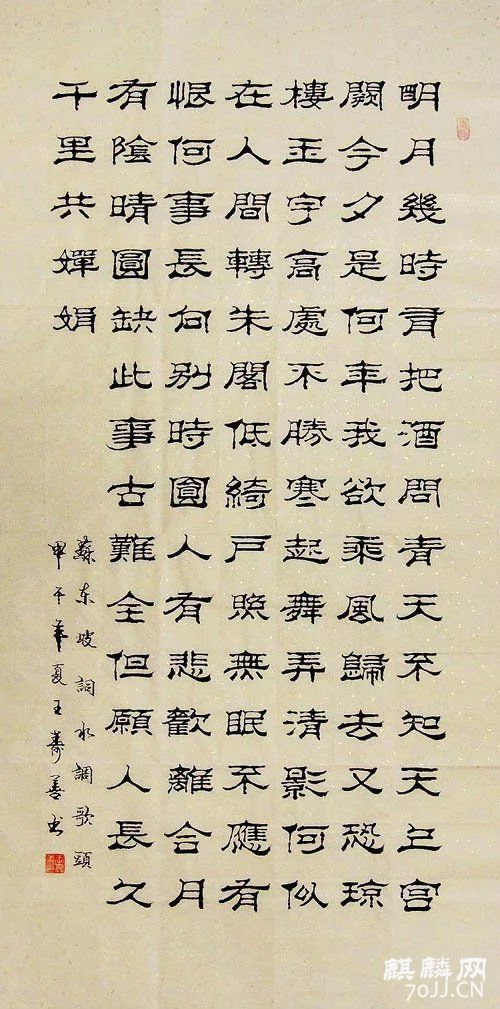 明月幾時有把酒問青天不知天上宮
闕今夕是何年我欲乘風歸去又恐瓊
樓玉宇高處不勝寒起舞弄清影何似
在人間轉朱閣低綺戶照無眠不應有
恨何事長向別時圓人有悲歡離合月
有陰晴圓缺此事古難全但願人長久
千里共嬋娟
蘇东坡詞水調歌頭
甲午年夏王壽善书
麒麟网
70JJ.CN